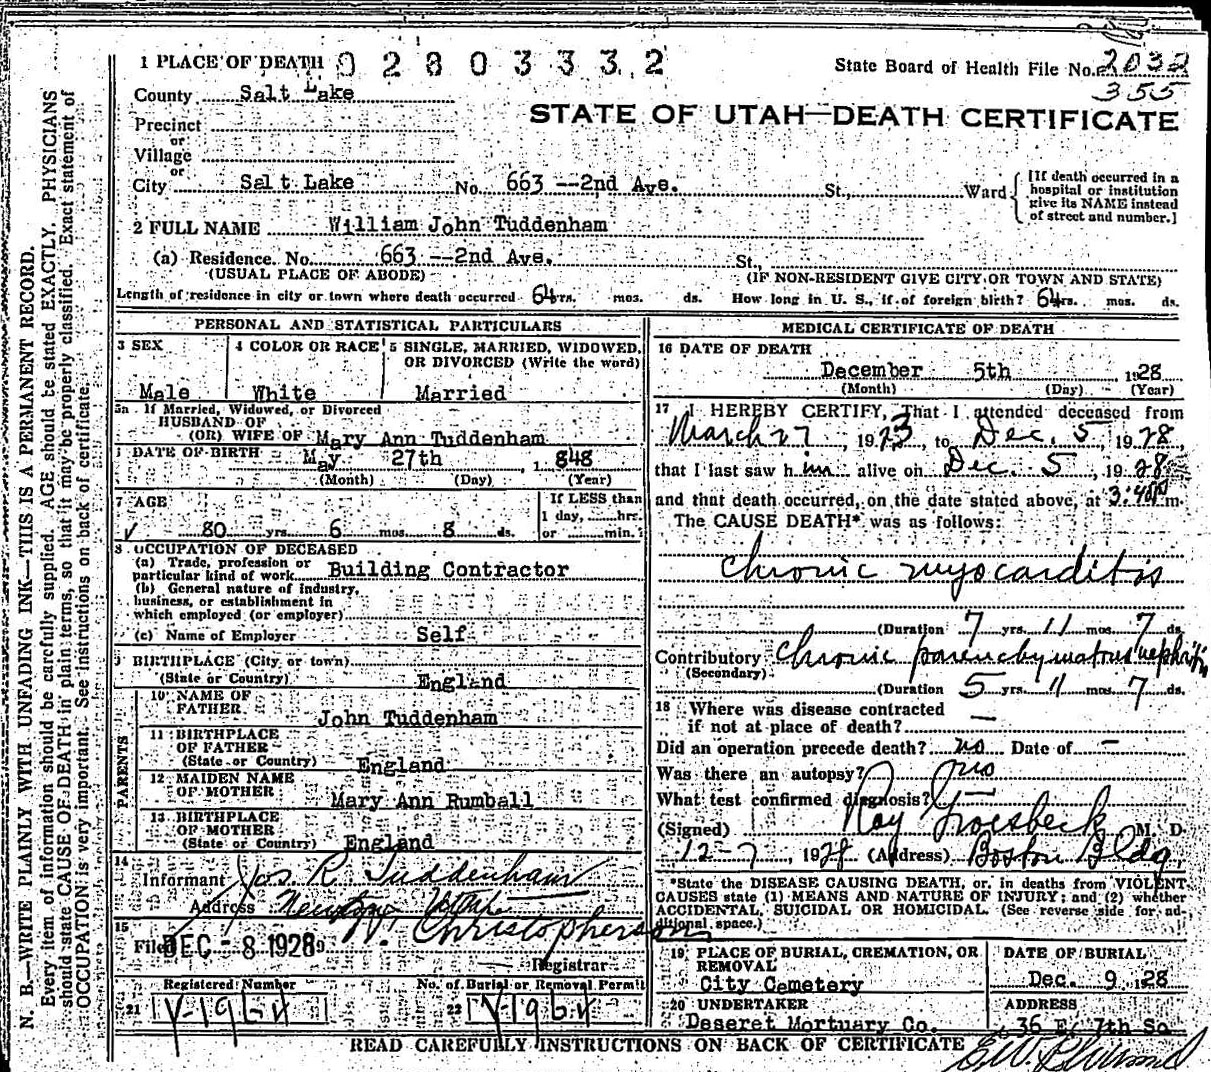 1 PLACE OF DEATH 02803332
State Board of Health File No. 2032
355
County Salt Lake
STATE OF UTAH—DEATH CERTIFICATE
Precinct
or
Village
or
City Salt Lake No. 663 --2nd Ave. St., Ward
[If death occurred in a
hospital or institution
give its NAME instead
of street and number.]
2 FULL NAME William John Tuddenham
(a) Residence. No. 663 --2nd Ave. St.,
(USUAL PLACE OF ABODE) (IF NON-RESIDENT GIVE CITY OR TOWN AND STATE)
Length of residence in city or town where death occurred 64 yrs. mos. ds. How long in U. S., if of foreign birth? 64 yrs. mos. ds.
PERSONAL AND STATISTICAL PARTICULARS
3 SEX 4 COLOR OR RACE 5 SINGLE, MARRIED, WIDOWED,
OR DIVORCED (Write the word)
Male White Married
5a If Married, Widowed, or Divorced
HUSBAND OF
(OR) WIFE OF Mary Ann Tuddenham
DATE OF BIRTH May 27th, 1848
(Month) (Day) (Year)
7 AGE If LESS than
1 day, hrs.
80 yrs. 6 mos. 8 ds. or min.?
8 OCCUPATION OF DECEASED
(a) Trade, profession or
particular kind of work Building Contractor
(b) General nature of industry,
business, or establishment in
which employed (or employer)
(c) Name of Employer Self
9 BIRTHPLACE (City or town)
(State or Country) England
PARENTS
10 NAME OF
FATHER John Tuddenham
11 BIRTHPLACE
OF FATHER
(State or Country) England
12 MAIDEN NAME
OF MOTHER Mary Ann Rumball
13 BIRTHPLACE
OF MOTHER
(State or Country) England
14
Informant Jos R Tuddenham
Address Newton Utah
15
Filed DEC - 8 1928 Christopherson
Registrar
Registered Number No. of Burial or Removal Permit
21 V-1964 22 V-1964
MEDICAL CERTIFICATE OF DEATH
16 DATE OF DEATH
December 5th, 1928
(Month) (Day) (Year)
17 I HEREBY CERTIFY, That I attended deceased from
March 27, 1923, to Dec. 5, 1928,
that I last saw him alive on Dec. 5, 1928
and that death occurred, on the date stated above, at 3:40 P m.
The CAUSE DEATH* was as follows:
Chronic myocarditis
(Duration 7 yrs. 11 mos. 7 ds.
Contributory Chronic parenchymatous nephritis
(Secondary)
(Duration 5 yrs. 11 mos. 7 ds.
18 Where was disease contracted
if not at place of death? —
Did an operation precede death? no Date of —
Was there an autopsy? no
What test confirmed diagnosis?
(Signed) Ray Groesbeck M. D.
12-7, 1928 (Address) Boston Bldg.
*State the DISEASE CAUSING DEATH, or, in deaths from VIOLENT
CAUSES state (1) MEANS AND NATURE OF INJURY; and (2) whether
ACCIDENTAL, SUICIDAL OR HOMICIDAL. (See reverse side for ad-
ditional space.)
19 PLACE OF BURIAL, CREMATION, OR
REMOVAL
City Cemetery
DATE OF BURIAL
Dec. 9, 1928
20 UNDERTAKER
Deseret Mortuary Co.
ADDRESS
36 E. 7th So.
READ CAREFULLY INSTRUCTIONS ON BACK OF CERTIFICATE
N. B.—WRITE PLAINLY WITH UNFADING INK—THIS IS A PERMANENT RECORD.
Every item of information should be carefully supplied. AGE should be stated EXACTLY. PHYSICIANS
should state CAUSE OF DEATH in plain terms, so that it may be properly classified. Exact statement of
OCCUPATION is very important. See instructions on back of certificate.